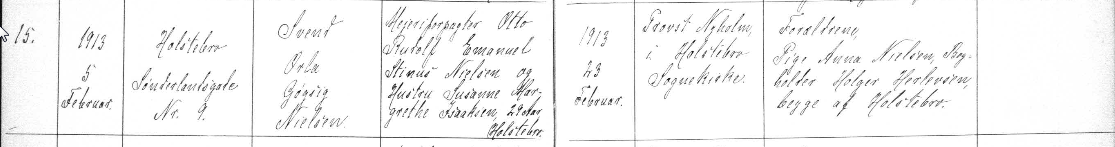 15.
1913
5
Februar.
Holstebro
Sønderlandsgade
Nr. 9.
Svend
Orla
Gögsig
Nielsen.
Meieriforpagter Otto
Rudolf Emanuel
Stinus Nielsen og
Hustru Susanne Mar-
grethe Isaaksen, 29 Aar,
Holstebro.
1913
23
Februar.
Provst Nyholm,
i Holstebro
Sognekirke.
Forældrene,
Pige Anna Nielsen, Bog-
holder Holger Herlevsen,
begge af Holstebro.